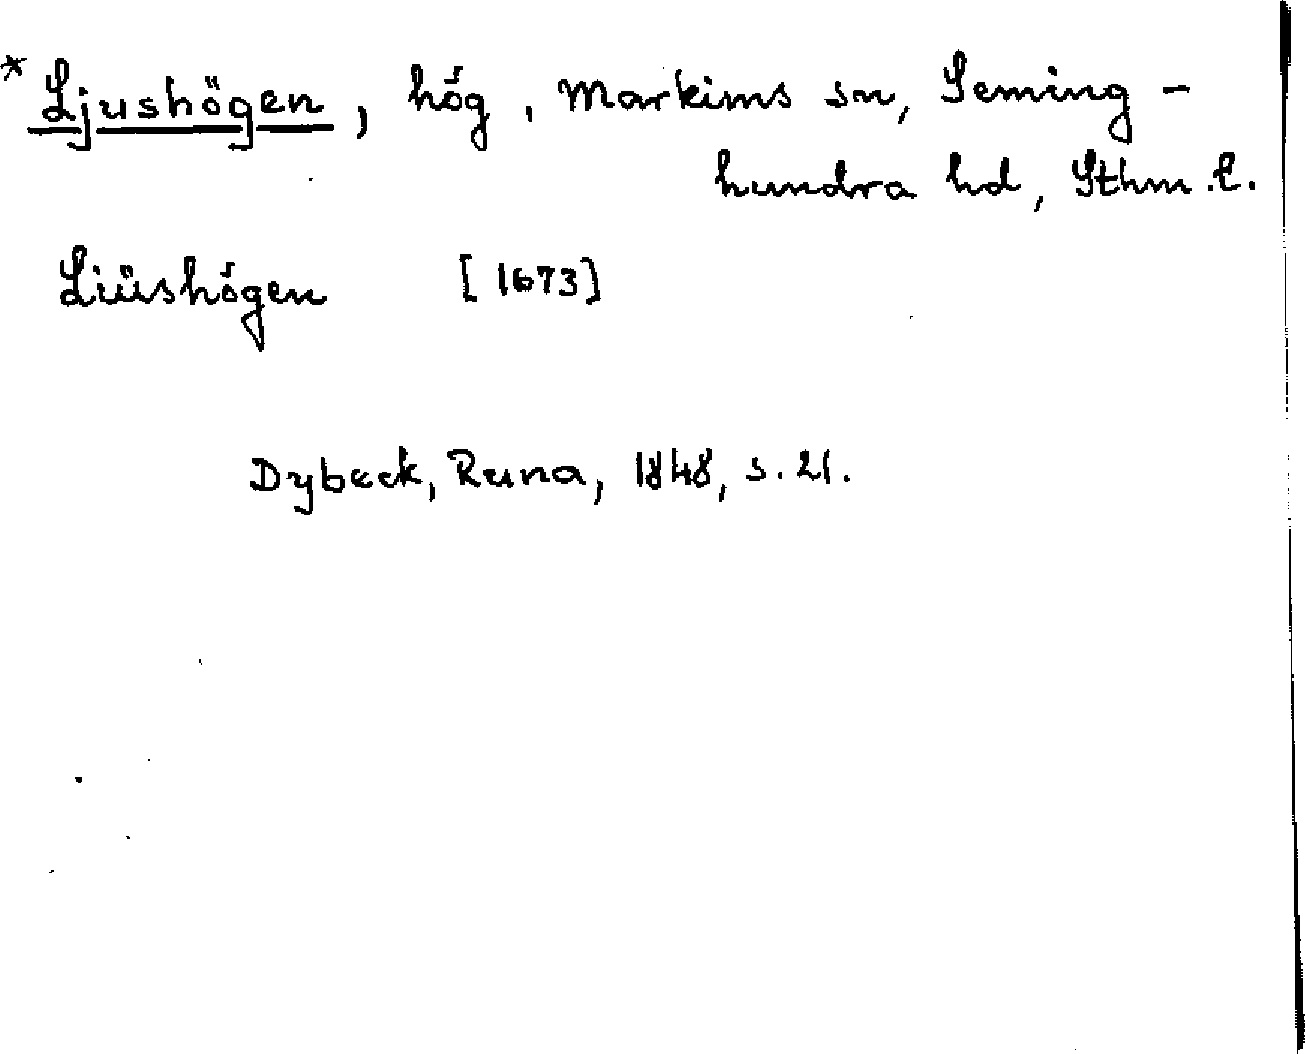 * Ljushögen, hög, Markims sn, Seming-
hundra hd, Sthm.l.
Liüshögen [1673]
Dybeck, Runa, 1848, s. 21.